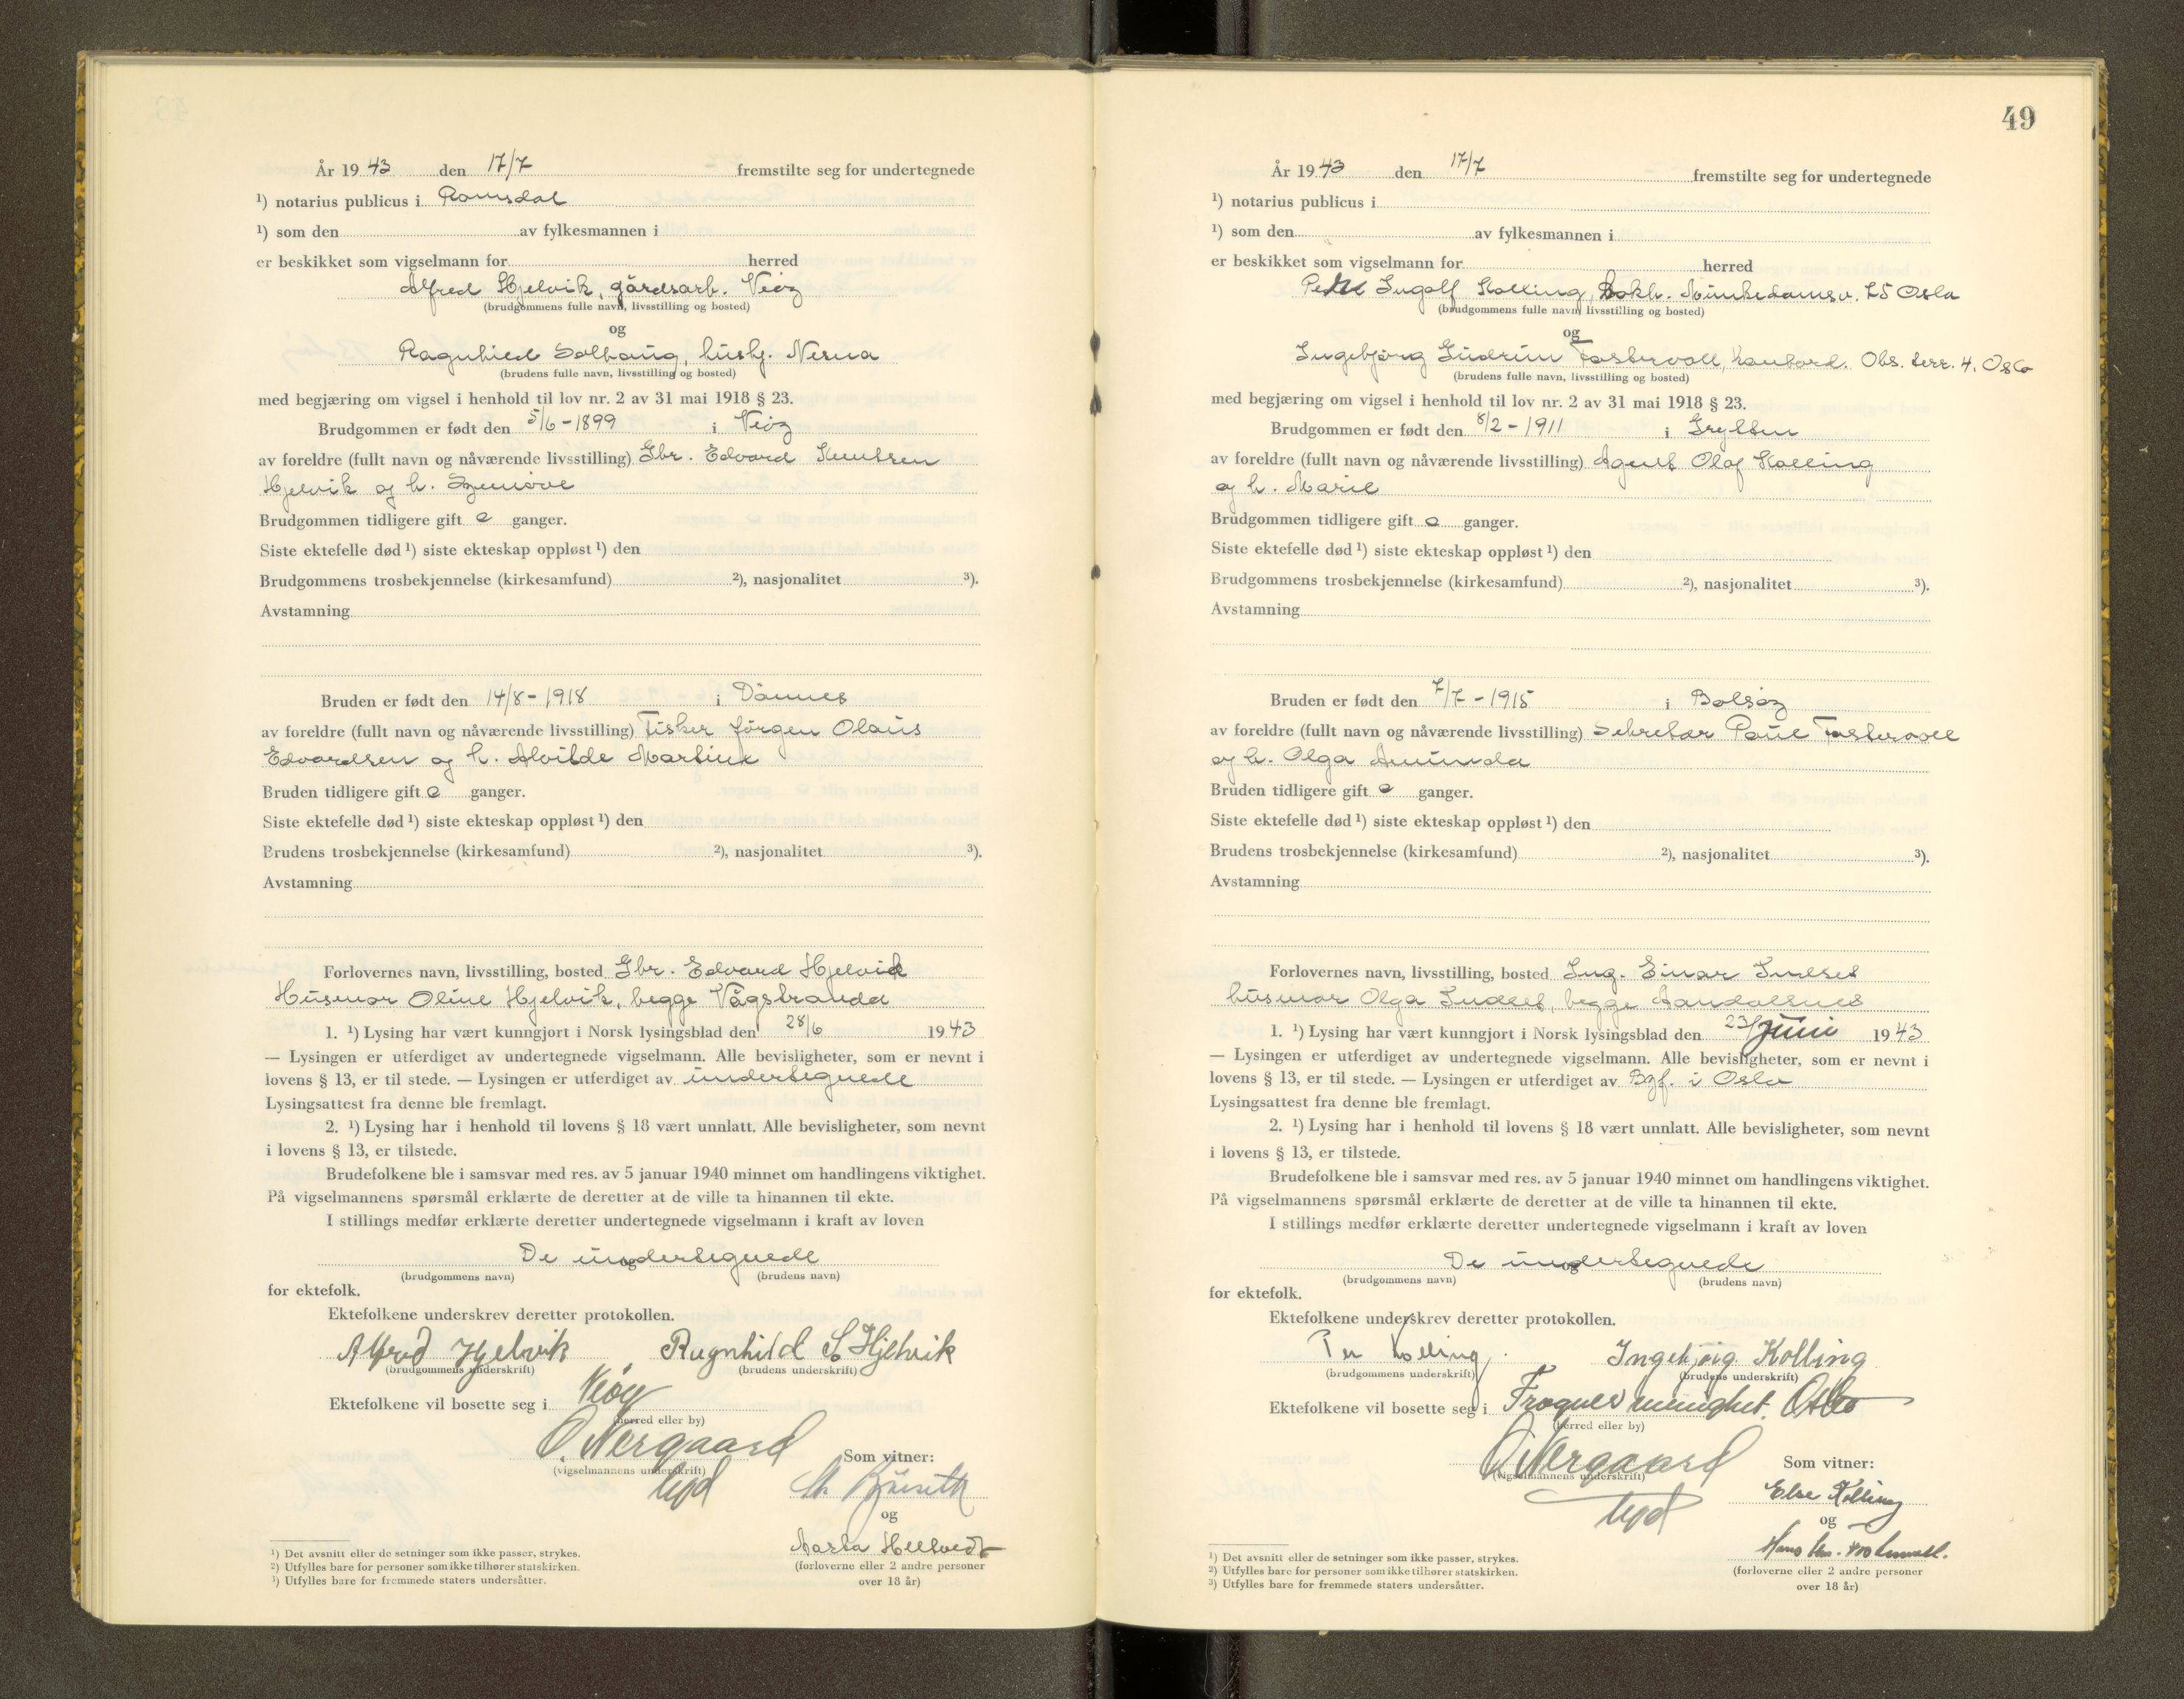 År 1943 den 17/7 fremstilte seg for undertegnede
¹) notarius publicus i Romsdal
¹) som den av fylkesmannen i
er beskikket som vigselmann for herred
Alfred Hjelvik, gårdsarb. Veøy
(brudgommens fulle navn, livsstilling og bosted)
og
Ragnhild Solhaug, hush. Nesna
(brudens fulle navn, livsstilling og bosted)
med begjæring om vigsel i henhold til lov nr. 2 av 31 mai 1918 § 23.
Brudgommen er født den 5/6-1899 i Veøy
av foreldre (fullt navn og nåværende livsstilling) Gbr. Edvard Knutsen
Hjelvik og h. Synnöve
Brudgommen tidligere gift 0 ganger.
Siste ektefelle død ¹) siste ekteskap oppløst ¹) den
Brudgommens trosbekjennelse (kirkesamfund) ²), nasjonalitet ³).
Avstamning
Bruden er født den 14/8-1918 i Dönnes
av foreldre (fullt navn og nåværende livsstilling) Fisker Jörgen Olaus
Edvardsen og h. Alvilde Martine
Bruden tidligere gift 0 ganger.
Siste ektefelle død ¹) siste ekteskap oppløst ¹) den
Brudens trosbekjennelse (kirkesamfund) ²), nasjonalitet ³).
Avstamning
Forlovernes navn, livsstilling, bosted Gbr. Edvard Hjelvik
Husmor Oline Hjelvik, begge Vågstranda
1. ¹) Lysing har vært kunngjort i Norsk lysingsblad den 28/6 1943
— Lysingen er utferdiget av undertegnede vigselmann. Alle bevisligheter, som er nevnt i
lovens § 13, er til stede. — Lysingen er utferdiget av undertegnede
Lysingsattest fra denne ble fremlagt.
2. ¹) Lysing har i henhold til lovens § 18 vært unnlatt. Alle bevisligheter, som nevnt
i lovens § 13, er tilstede.
Brudefolkene ble i samsvar med res. av 5 januar 1940 minnet om handlingens viktighet.
På vigselmannens spørsmål erklærte de deretter at de ville ta hinannen til ekte.
I stillings medfør erklærte deretter undertegnede vigselmann i kraft av loven
De undertegnede
og
(brudgommens navn) (brudens navn)
for ektefolk.
Ektefolkene underskrev deretter protokollen.
Alfred Hjelvik Ragnhild S. Hjelvik
(brudgommens underskrift) (brudens underskrift)
Ektefolkene vil bosette seg i Veøy
(herred eller by)
O. Nergaard
(vigselmannens underskrift)
Som vitner:
og
Marta
(forloverne eller 2 andre personer
over 18 år)
¹) Det avsnitt eller de setninger som ikke passer, strykes.
²) Utfylles bare for personer som ikke tilhører statskirken.
³) Utfylles bare for fremmede staters undersåtter.
49
År 1943 den 17/7 fremstilte seg for undertegnede
¹) notarius publicus i
¹) som den av fylkesmannen i
er beskikket som vigselmann for herred
Ingolf Kolling, bokh. Munkedamsv. 25 Oslo
(brudgommens fulle navn, livsstilling og bosted)
og
Ingebjørg Gudrun Fostervoll, kontord. Obs. terr. 4. Oslo
(brudens fulle navn, livsstilling og bosted)
med begjæring om vigsel i henhold til lov nr. 2 av 31 mai 1918 § 23.
Brudgommen er født den 8/2-1911 i Grytten
av foreldre (fullt navn og nåværende livsstilling) Agent Olaf Kolling
og h. Marie
Brudgommen tidligere gift 0 ganger.
Siste ektefelle død ¹) siste ekteskap oppløst ¹) den
Brudgommens trosbekjennelse (kirkesamfund) ²), nasjonalitet ³).
Avstamning
Bruden er født den 7/7-1915 i Bolsøy
av foreldre (fullt navn og nåværende livsstilling) Sekretær Paul Fostervoll
og h. Olga Amunda
Bruden tidligere gift 0 ganger.
Siste ektefelle død ¹) siste ekteskap oppløst ¹) den
Brudens trosbekjennelse (kirkesamfund) ²), nasjonalitet ³).
Avstamning
Forlovernes navn, livsstilling, bosted Ing. Einar Indset
husmor Olga Indset, begge Åndalsnes
1. ¹) Lysing har vært kunngjort i Norsk lysingsblad den 23/juni 1943
— Lysingen er utferdiget av undertegnede vigselmann. Alle bevisligheter, som er nevnt i
lovens § 13, er til stede. — Lysingen er utferdiget av Byf. i Oslo
Lysingsattest fra denne ble fremlagt.
2. ¹) Lysing har i henhold til lovens § 18 vært unnlatt. Alle bevisligheter, som nevnt
i lovens § 13, er tilstede.
Brudefolkene ble i samsvar med res. av 5 januar 1940 minnet om handlingens viktighet.
På vigselmannens spørsmål erklærte de deretter at de ville ta hinannen til ekte.
I stillings medfør erklærte deretter undertegnede vigselmann i kraft av loven
De undertegnede
og
(brudgommens navn) (brudens navn)
for ektefolk.
Ektefolkene underskrev deretter protokollen.
Per Kolling Ingebjørg Kolling
(brudgommens underskrift) (brudens underskrift)
Ektefolkene vil bosette seg i Frogner menighet. Oslo
(herred eller by)
O. Nergaard
(vigselmannens underskrift)
Som vitner:
Else Kolling
og
Hans
(forloverne eller 2 andre personer
over 18 år)
¹) Det avsnitt eller de setninger som ikke passer, strykes.
²) Utfylles bare for personer som ikke tilhører statskirken.
³) Utfylles bare for fremmede staters undersåtter.